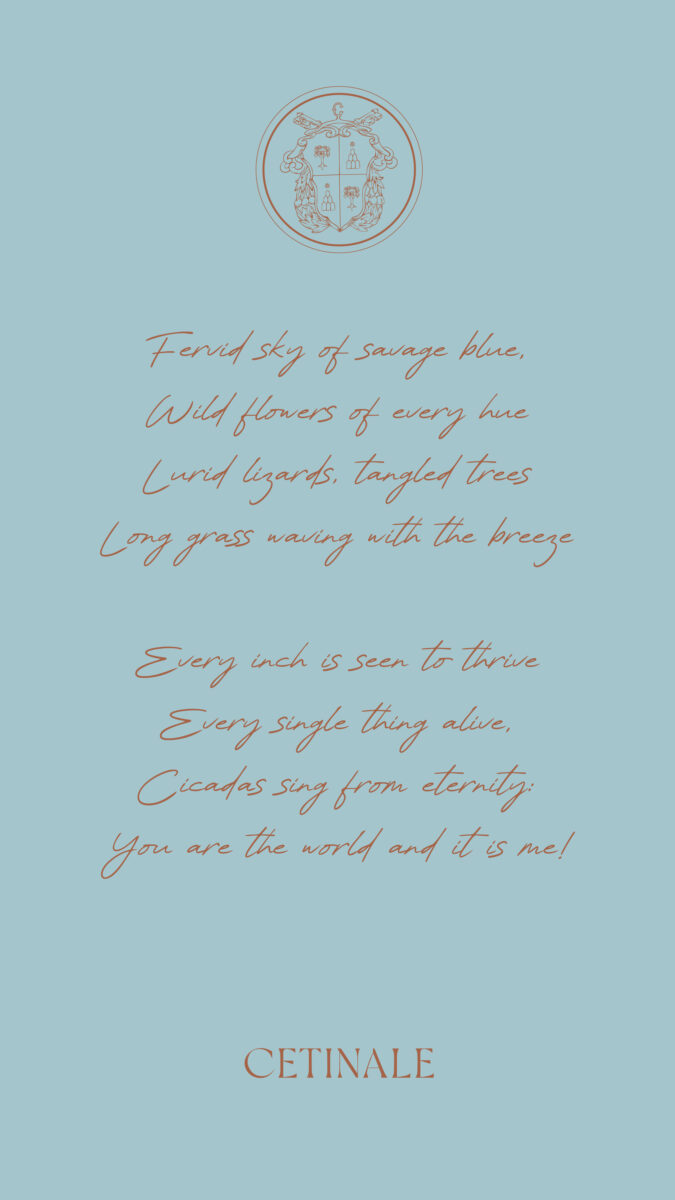 Fervid sky of savage blue,
Wild flowers of every hue
Lurid lizards, tangled trees
Long grass waving with the breeze
Every inch is seen to thrive
Every single thing alive,
Cicadas sing from eternity:
You are the world and it is me!
CETINALE